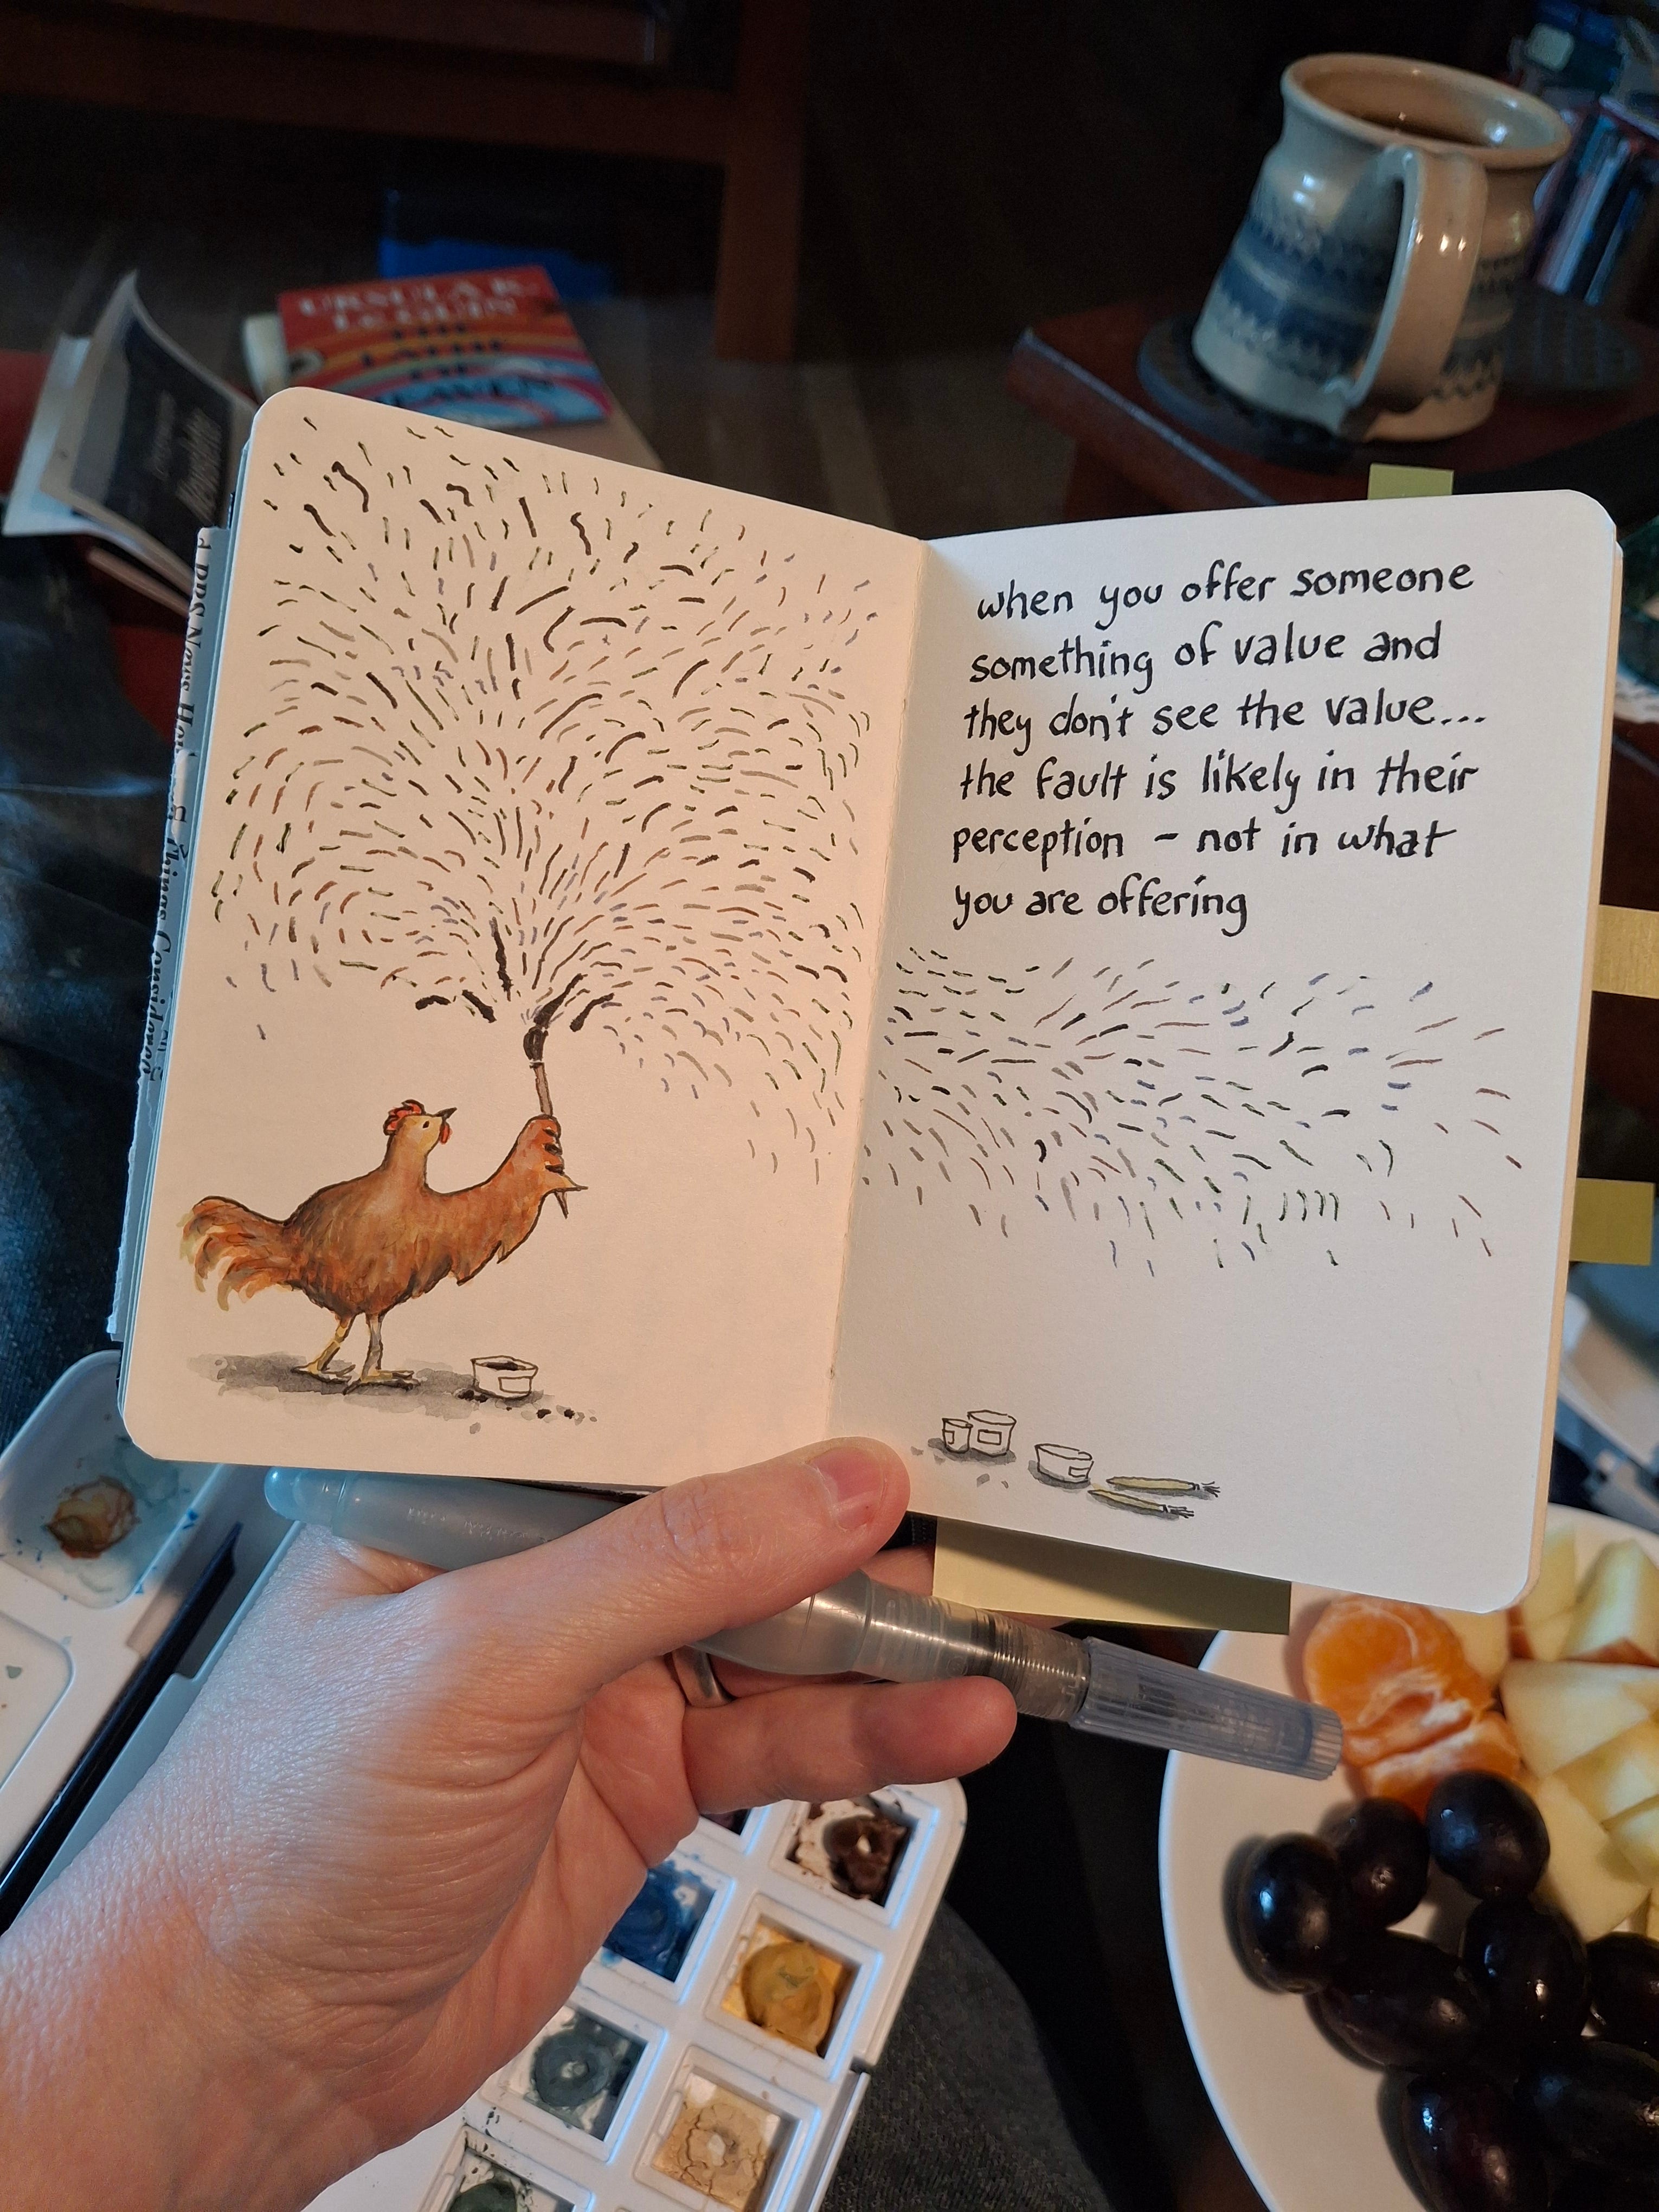 URSULA K.
LE GUIN
THE
LATHE
OF
HEAVEN
when you offer someone
something of value and
they don't see the value...
the fault is likely in their
perception – not in what
you are offering